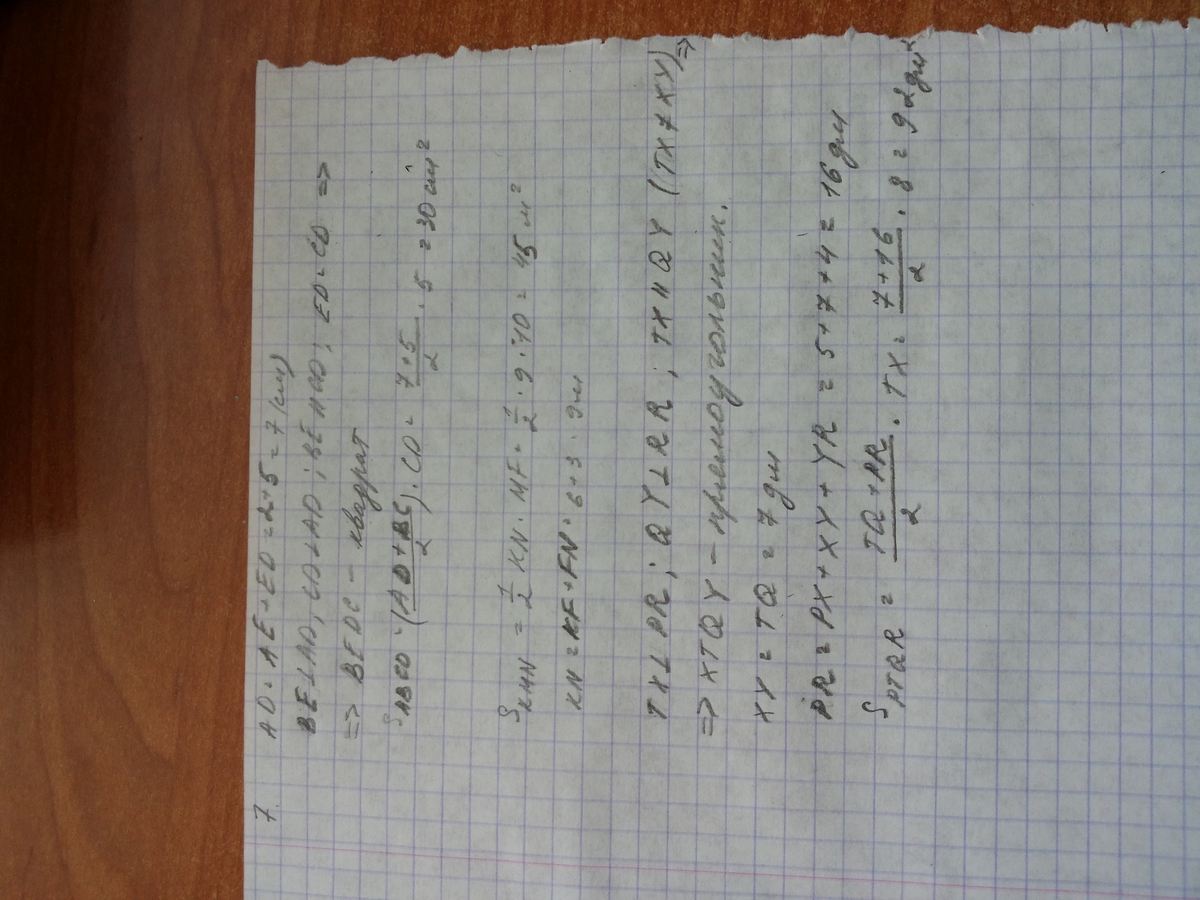 7. AD = AE + ED = 2+5 = 7 (см)
BE⊥AD, CD⊥AD; BE∥CD; ED=CD =>
=> BEDC – квадрат
S_ABCD = (AD+BC)/2 · CD = (7+5)/2 · 5 = 30 см²
S_KMN = 1/2 KN · MF = 1/2 · 9 · 10 = 45 м²
KN = KF + FN = 6+3 = 9м
TX⊥PR; QY⊥RR; TX∥QY (TX≠XY) =>
=> XTQY – прямоугольник.
XY = TQ = 7 дм
PR = PX + XY + YR = 5+7+4 = 16 дм
S_PTQR = (TQ+PR)/2 · TX = (7+16)/2 · 8 = 92 дм²